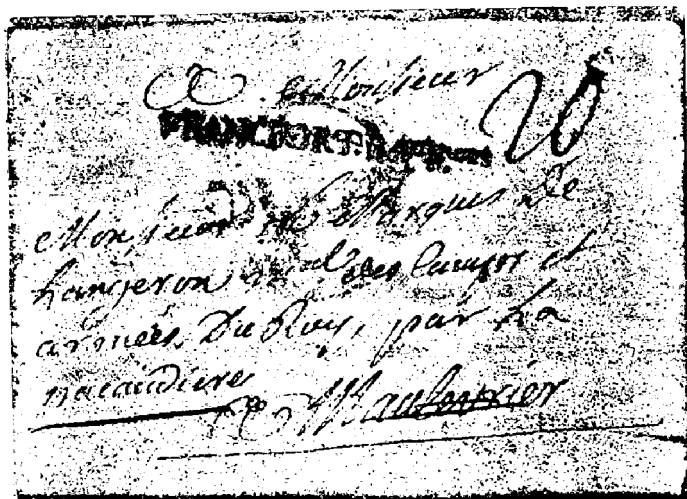 A Monsieur
FRANCFORT
20
Monsieur Le Marquis de
Langeron mal des Camps et
armées Du Roy, par La
pacaudiere
A Maulevrier